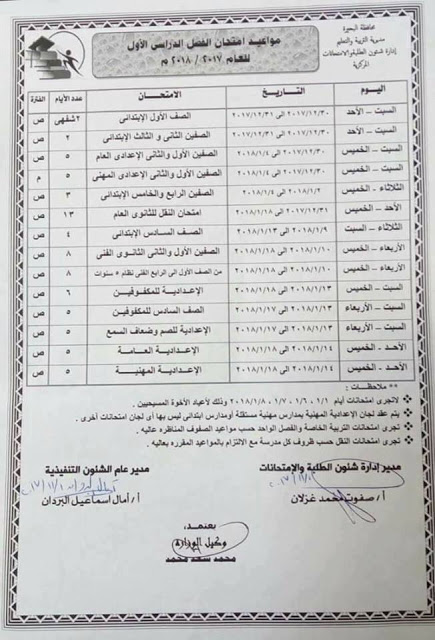 محافظة البحيرة
مديرية التربية والتعليم
إدارة شئون الطلبة والامتحانات
المركزية
مواعيد امتحان الفصل الدراسي الأول
للعام ٢٠١٧ / ٢٠١٨ م
اليوم التاريخ الامتحان عدد الأيام الفترة
السبت – الأحد ٢٠١٧/١٢/٣٠ الى ٢٠١٧/١٢/٣١ الصف الأول الإبتدائى ٢شفهى ص
السبت – الأحد ٢٠١٧/١٢/٣٠ الى ٢٠١٧/١٢/٣١ الصفين الثانى و الثالث الإبتدائى ٢ ص
السبت – الخميس ٢٠١٧/١٢/٣٠ الى ٢٠١٨/١/٤ الصفين الأول والثانى الإعدادى العام ٥ ص
السبت – الخميس ٢٠١٧/١٢/٣٠ الى ٢٠١٨/١/٤ الصفين الأول والثانى الإعدادى المهنى ٥ م
الثلاثاء - الخميس ٢٠١٨/١/٢ الى ٢٠١٨/١/٤ الصفين الرابع والخامس الإبتدائى ٣ ص
الأحد – الخميس ٢٠١٧/١٢/٣١ الى ٢٠١٨/١/١٨ إمتحان النقل للثانوى العام ١٣ ص
الثلاثاء – السبت ٢٠١٨/١/٩ الى ٢٠١٨/١/١٣ الصف السادس الإبتدائى ٤ ص
الأربعاء – الخميس ٢٠١٨/١/١٠ الى ٢٠١٨/١/١٨ الصفين الأول والثانى الثانوى الفنى ٨ ص
الأربعاء – الخميس ٢٠١٨/١/١٠ الى ٢٠١٨/١/١٨ من الصف الأول الى الرابع الفنى نظام ٥ سنوات ٨ ص
السبت – الخميس ٢٠١٨/١/١٣ الى ٢٠١٨/١/١٨ الإعدادية للمكفوفين ٦ ص
السبت – الأربعاء ٢٠١٨/١/١٣ الى ٢٠١٨/١/١٧ الصف السادس للمكفوفين ٥ ص
السبت – الأربعاء ٢٠١٨/١/١٣ الى ٢٠١٨/١/١٧ الإعدادية للصم وضعاف السمع ٥ ص
الأحد – الخميس ٢٠١٨/١/١٤ الى ٢٠١٨/١/١٨ الإعدادية العامة ٥ ص
الأحد – الخميس ٢٠١٨/١/١٤ الى ٢٠١٨/١/١٨ الإعدادية المهنية ٥ ص
** ملاحظات :
لاتجرى إمتحانات أيام ١/١ ، ١/٦ ، ١/٧ ، ٢٠١٨/١/٨ وذلك لأعياد الأخوة المسيحيين .
يتم عقد لجان الإعدادية المهنية بمدارس مهنية مستقلة أومدارس ابتدائى ليس بها أى لجان امتحانات أخرى .
تجرى امتحانات التربية الخاصة والفصل الواحد حسب مواعيد الصفوف المناظره عاليه .
تجرى امتحانات النقل حسب ظروف كل مدرسة مع الالتزام بالمواعيد المقرره بعاليه .
مدير إدارة شئون الطلبة والإمتحانات مدير عام الشئون التنفيذية
أ/ صفوت محمد غزلان أ/ أمال اسماعيل البردان
يعتمد،
وكيل الوزارة
محمد سعد محمد